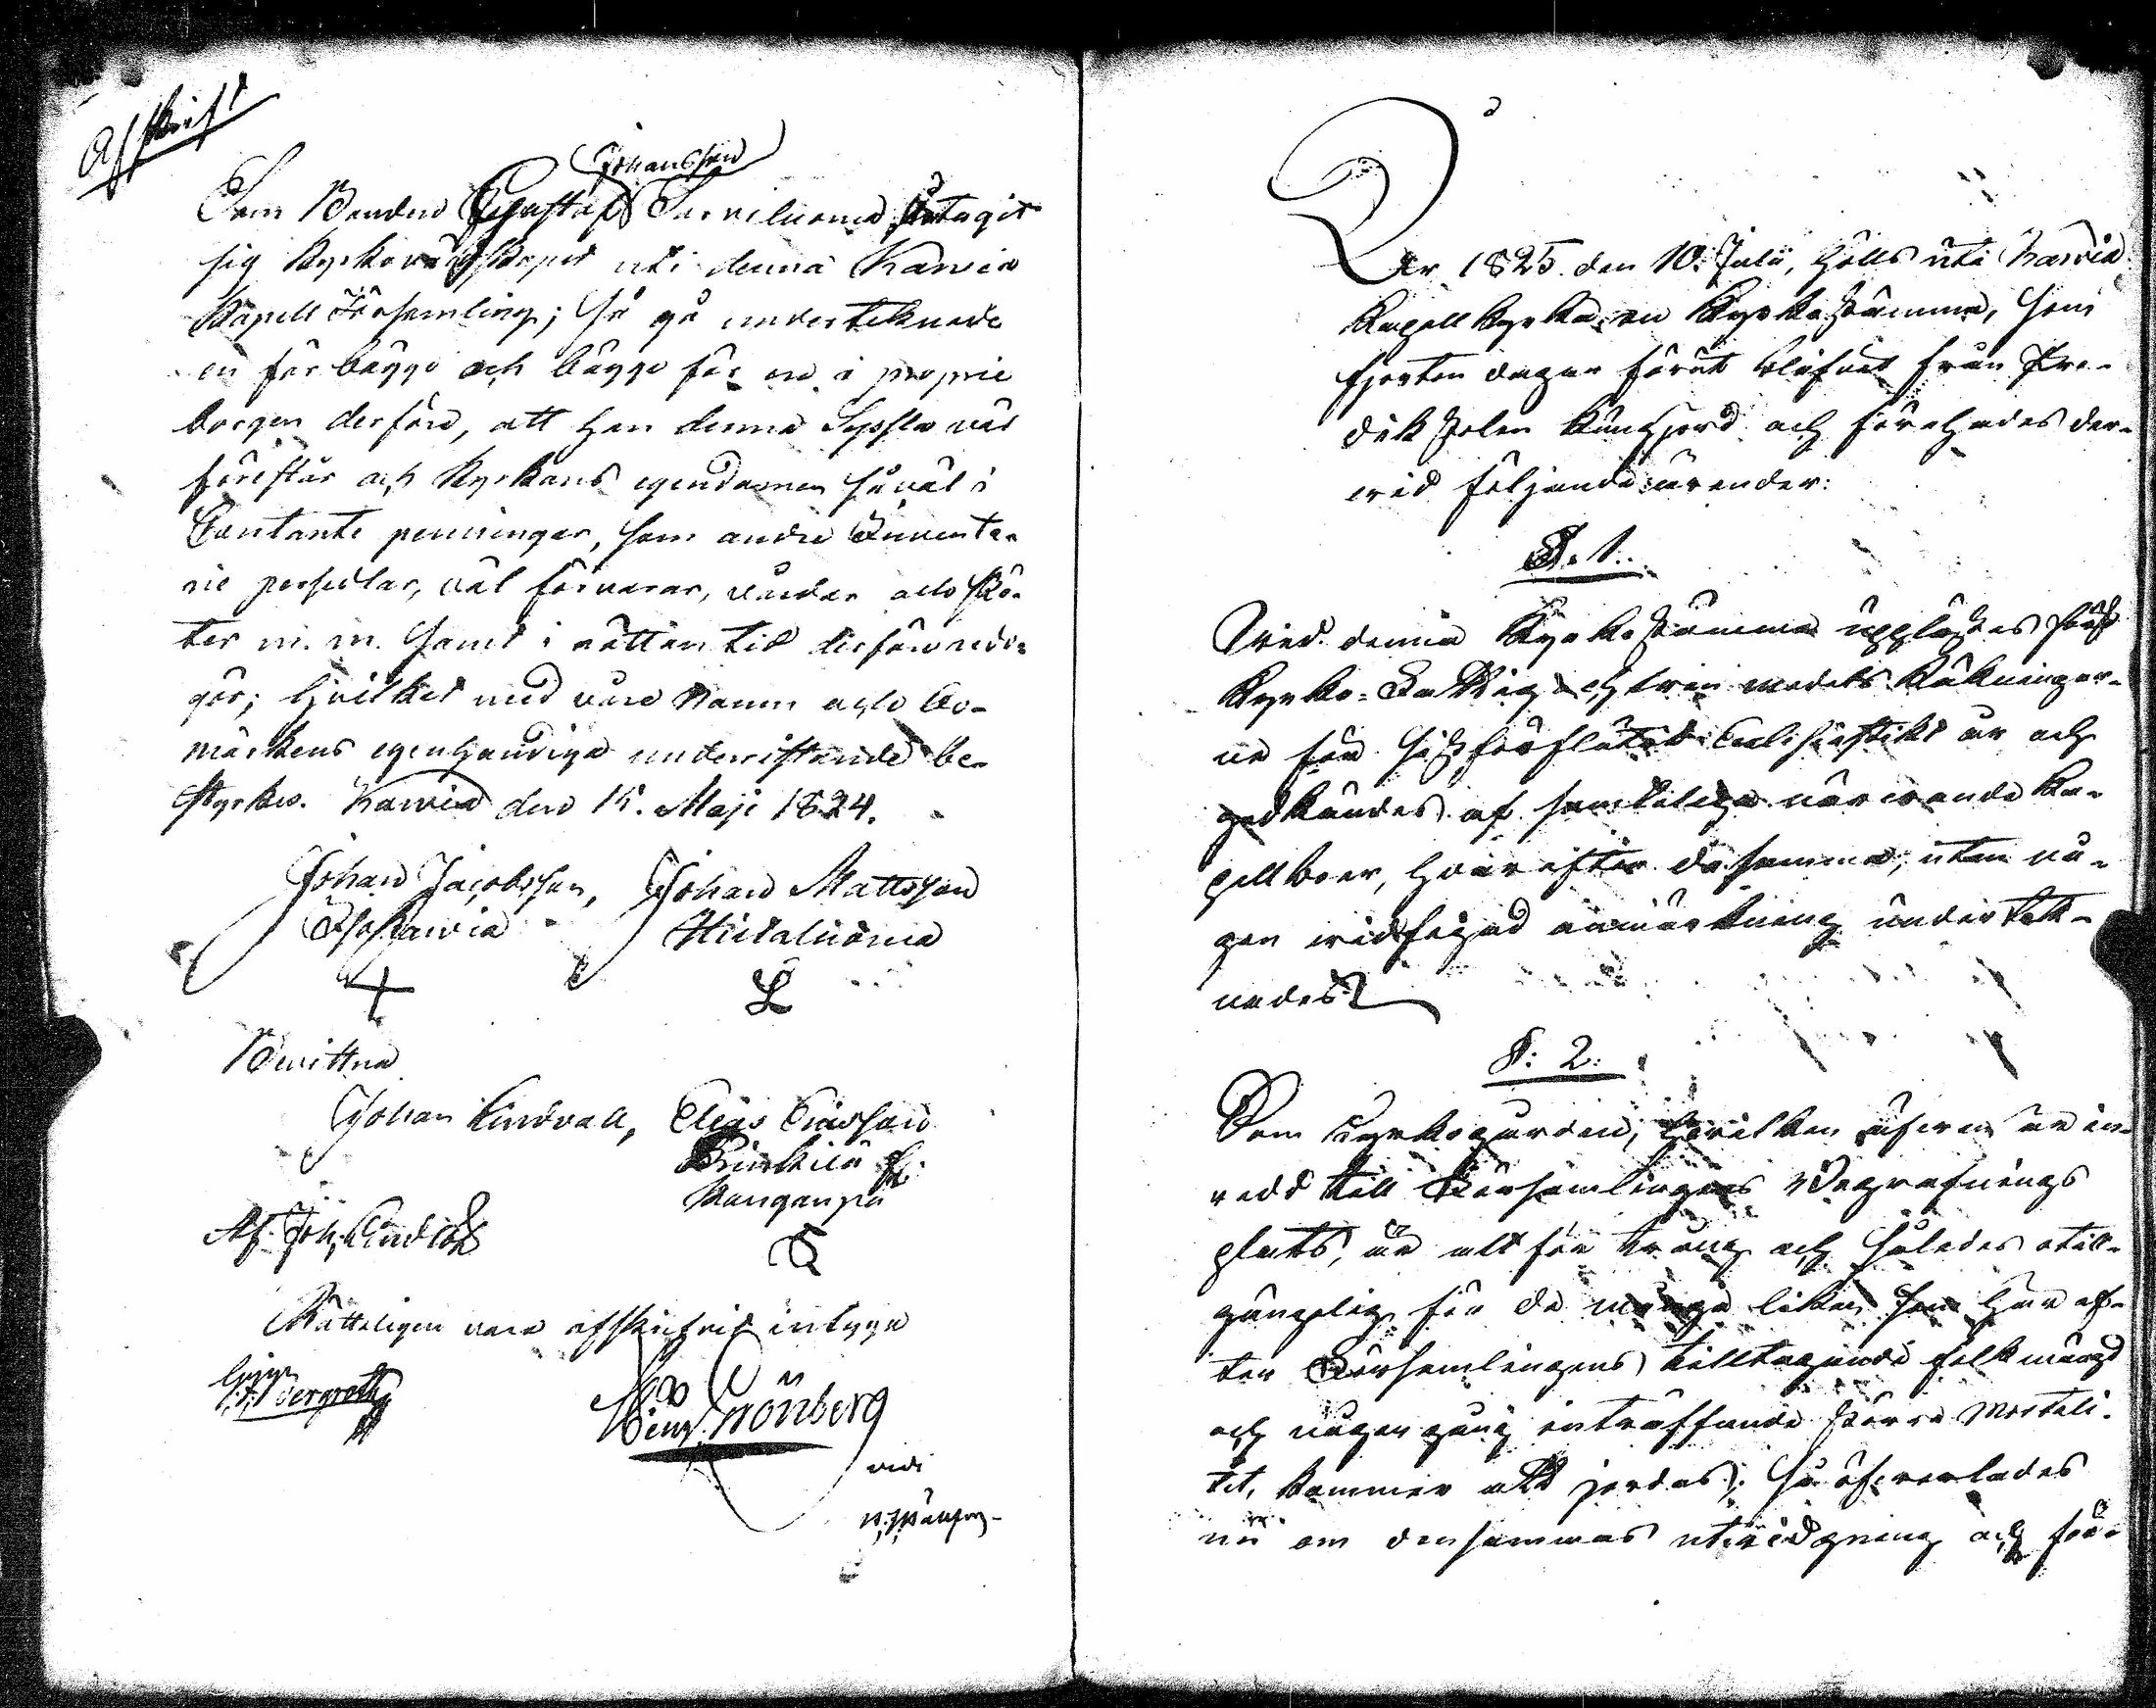 Afskrift
Johansson
Som Bonden Gustaf Sarviluoma åtagit
sig Kyrkovärdskapet uti denna Karvia
Kapell Församling; så gå undertecknade
en för bägge och bägge för en i proprie
borgen derföre, att han denna Syssla väl
förestår och Kyrkans egendomen såväl i
Contante penningar, som andre Invente-
rie persedlar, väl förvarar, vårdar och skö-
ter m. m. samt i rättan tid derföre redo-
gör; hvilket med våre Namn och bo-
märkens egenhändiga underristande be-
styrkes. Karvia den 15. Maji 1824.
Johan Jacobsson, Johan Mattsson
Karvia Hietaluoma
Bevittna
Johan Lindvall, Elias Eliasson
Kanganpä
Af Joh: Lindvall
Rätteligen vara afskrifvit intyga
Grönberg
vidi
År 1825 den 10. Julii, hölls uti Karvia
Kapell Kyrka en Kyrkostämma, som
fjorton dagar förut blifvit från Pre-
dikstolen kungjord och förehades der-
vid följande ärender:
§. 1.
Vid denna Kyrkostämma upplästes först
Kyrko- Fattig och medels Räkningar-
ne för sistförflutet Ecclesiastikt år och
godkändes af samtelige närvarande Ka-
pellboer, hvarefter de samma, uten nå-
gon vidfogad anmärkning undertek-
nades
§: 2:
Som kyrkogården, hvilken äfven är in-
redd till Församlingens Begrafnings
plats, är alt för trång och således otill-
gänglig för de många liken som här ef-
ter Församlingens tilltagande folkmängd
och någon gång inträffande större Mortali-
tet, kommer att jordas; så öfverlades
nu om densammas utvidgning och för-